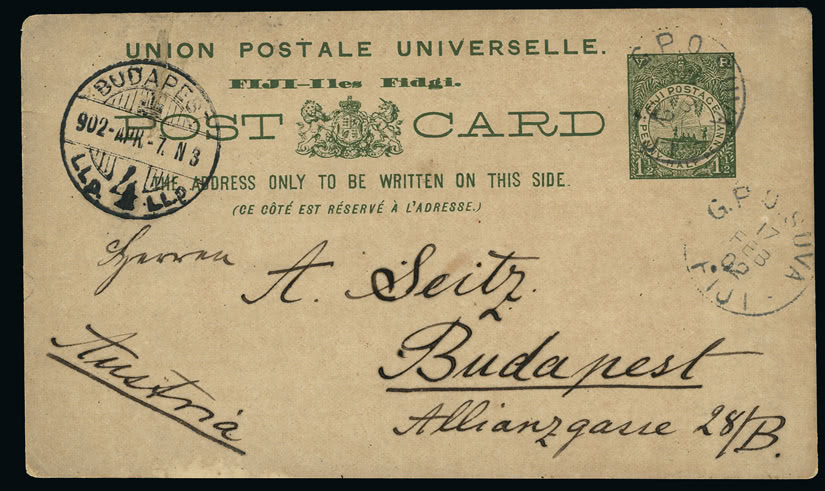 UNION POSTALE UNIVERSELLE.
FIJI-Iles Fidgi.
POST CARD
THE ADDRESS ONLY TO BE WRITTEN ON THIS SIDE.
(CE CÔTÉ EST RÉSERVÉ À L'ADRESSE.)
BUDAPEST
902-APR-7. N 3
4
LL.P. LL.P.
V. R.
FIJI POSTAGE
1½ 1½
G.P.O.
G.P.O. SUVA
17
FEB
02
FIJI
Herren
A. Seitz.
Budapest
Allianzgasse 28/B.
Austria